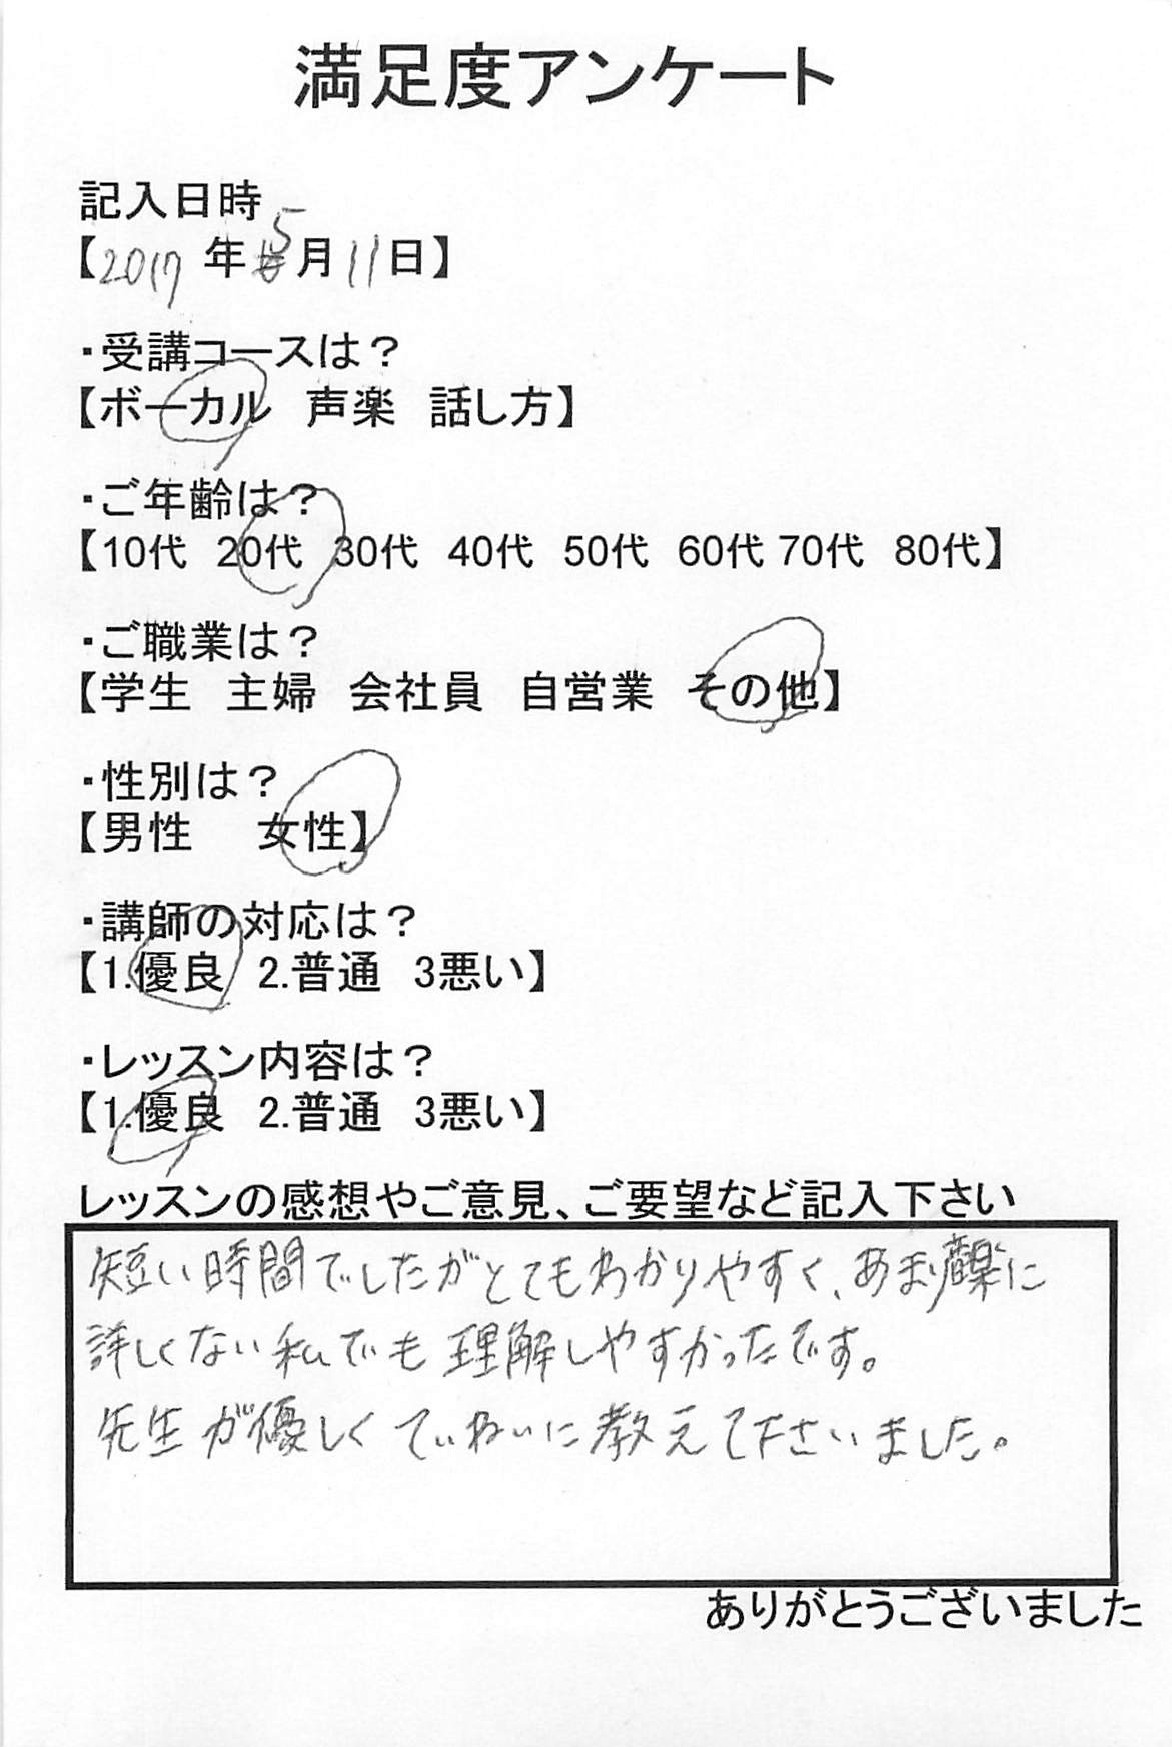 満足度アンケート
記入日時
【2017年5月11日】
・受講コースは？
【ボーカル 声楽 話し方】
・ご年齢は？
【10代 20代 30代 40代 50代 60代 70代 80代】
・ご職業は？
【学生 主婦 会社員 自営業 その他】
・性別は？
【男性 女性】
・講師の対応は？
【1.優良 2.普通 3悪い】
・レッスン内容は？
【1.優良 2.普通 3悪い】
レッスンの感想やご意見、ご要望など記入下さい
短い時間でしたがとてもわかりやすく、あまり音楽に
詳しくない私でも理解しやすかったです。
先生が優しくていねいに教えて下さいました。
ありがとうございました